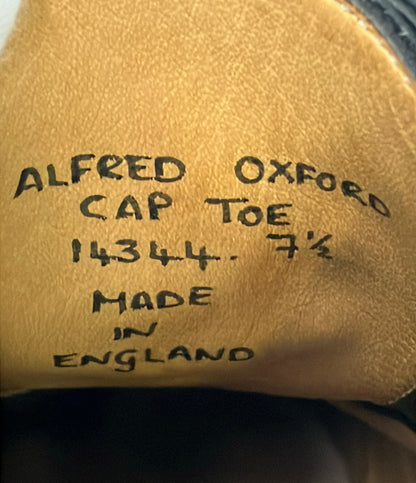 ALFRED OXFORD
CAP TOE
14344. 7½
MADE
IN
ENGLAND